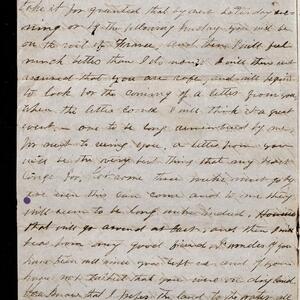 take it for granted that by next Saturday eve-
ning or by the following Sunday you will be
on the soil of France, and then I will feel
much better than I do now. I will then rest
assured that you are safe, and will begin
to look for the coming of a letter from you
When the letter comes I will think it a great
event, - one to be long remembered by me,
for next to seeing you, a letter from you
will be the very best thing that my heart
longs for. some three weeks must go by
ere even this can come and to me they
will seem to be long ones indeed. However
that will go around at last, and then I will
hear from my good friend. I wonder if you
have been well since you left us, and if you
have not wished that you were on dry land
You know that I prefer the land to the water